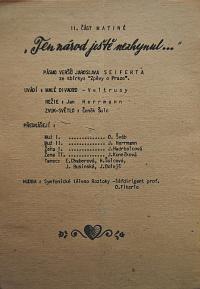 II. ČÁST MATINÉ
„Ten národ jistě nezhynul..."
PÁSMO VERŠŮ JAROSLAVA SEIFERTA
ze sbírky "Zpěvy o Praze".
UVÁDÍ: MALÉ DIVADLO - Veltrusy
REŽIE: Jan Herrmann
ZVUK-SVĚTLO: Čeněk Šulc
PŘEDNÁŠEJÍ:
Muž I. O. Šváb
Muž II. J. Herrmann
Žena I. J. Hudrholcová
Žena II. J. Konečková
Tanec:
HUDBA: Symfonické těleso Roztoky - řídí dirigent prof.
O. Fiterle